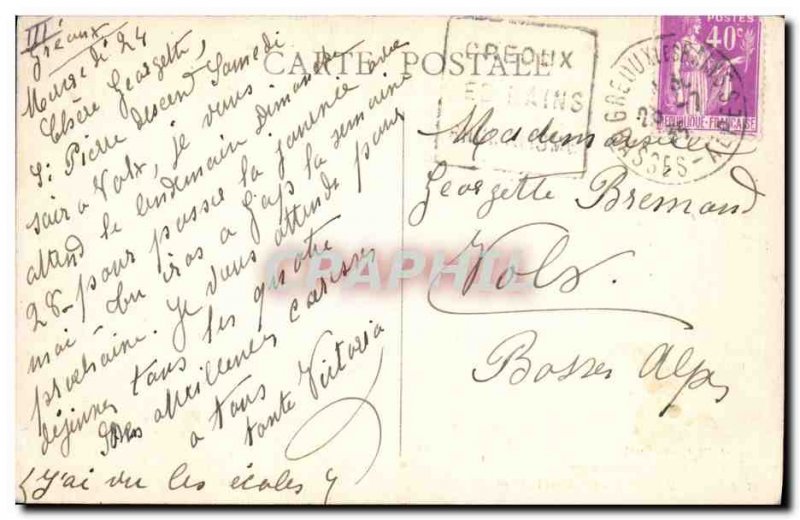 III
Gréoux
Mardi 24
Chère Georgette,
Si Pierre descend Samedi
soir a Volx, je vous
attend le lendemain Dimanche
28 pour passer la journée avec
moi - Tu iras a Gap la semaine
prochaine. Je vous attends pour
déjeuner tous les quatre
Bons caresses
a tous
tante Victoria
(J'ai vu les écoles)
CARTE POSTALE
GREOUX
LES BAINS
POSTES
40c
REPUBLIQUE-FRANÇAISE
GREOUX LES BAINS
BASSES-ALPES
Mademoiselle
Georgette Bremond
Volx.
Basses Alpes
CPAPHIL.COM